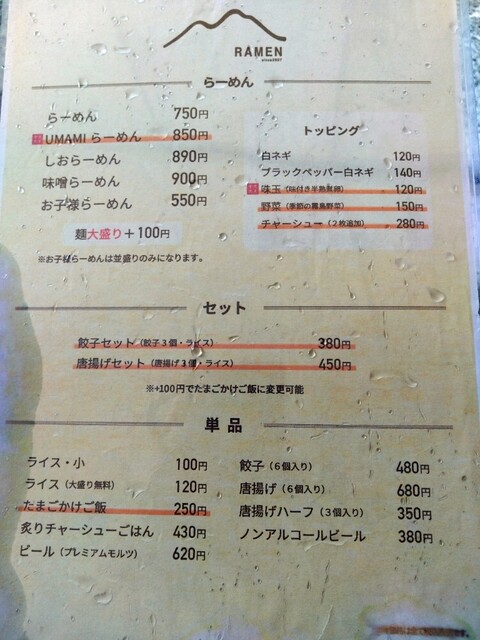 RAMEN
since2007
らーめん
らーめん 750円
UMAMIらーめん 850円
しおらーめん 890円
味噌らーめん 900円
お子様らーめん 550円
麺大盛り+100円
※お子様らーめんは並盛りのみになります。
トッピング
白ネギ 120円
ブラックペッパー白ネギ 140円
味玉(味付き半熟煮卵) 120円
野菜(季節の霧島野菜) 150円
チャーシュー(2枚追加) 280円
セット
餃子セット(餃子3個・ライス) 380円
唐揚げセット(唐揚げ3個・ライス) 450円
※+100円でたまごかけご飯に変更可能
単品
ライス・小 100円
ライス(大盛り無料) 120円
たまごかけご飯 250円
炙りチャーシューごはん 430円
ビール(プレミアムモルツ) 620円
餃子(6個入り) 480円
唐揚げ(6個入り) 680円
唐揚げハーフ(3個入り) 350円
ノンアルコールビール 380円